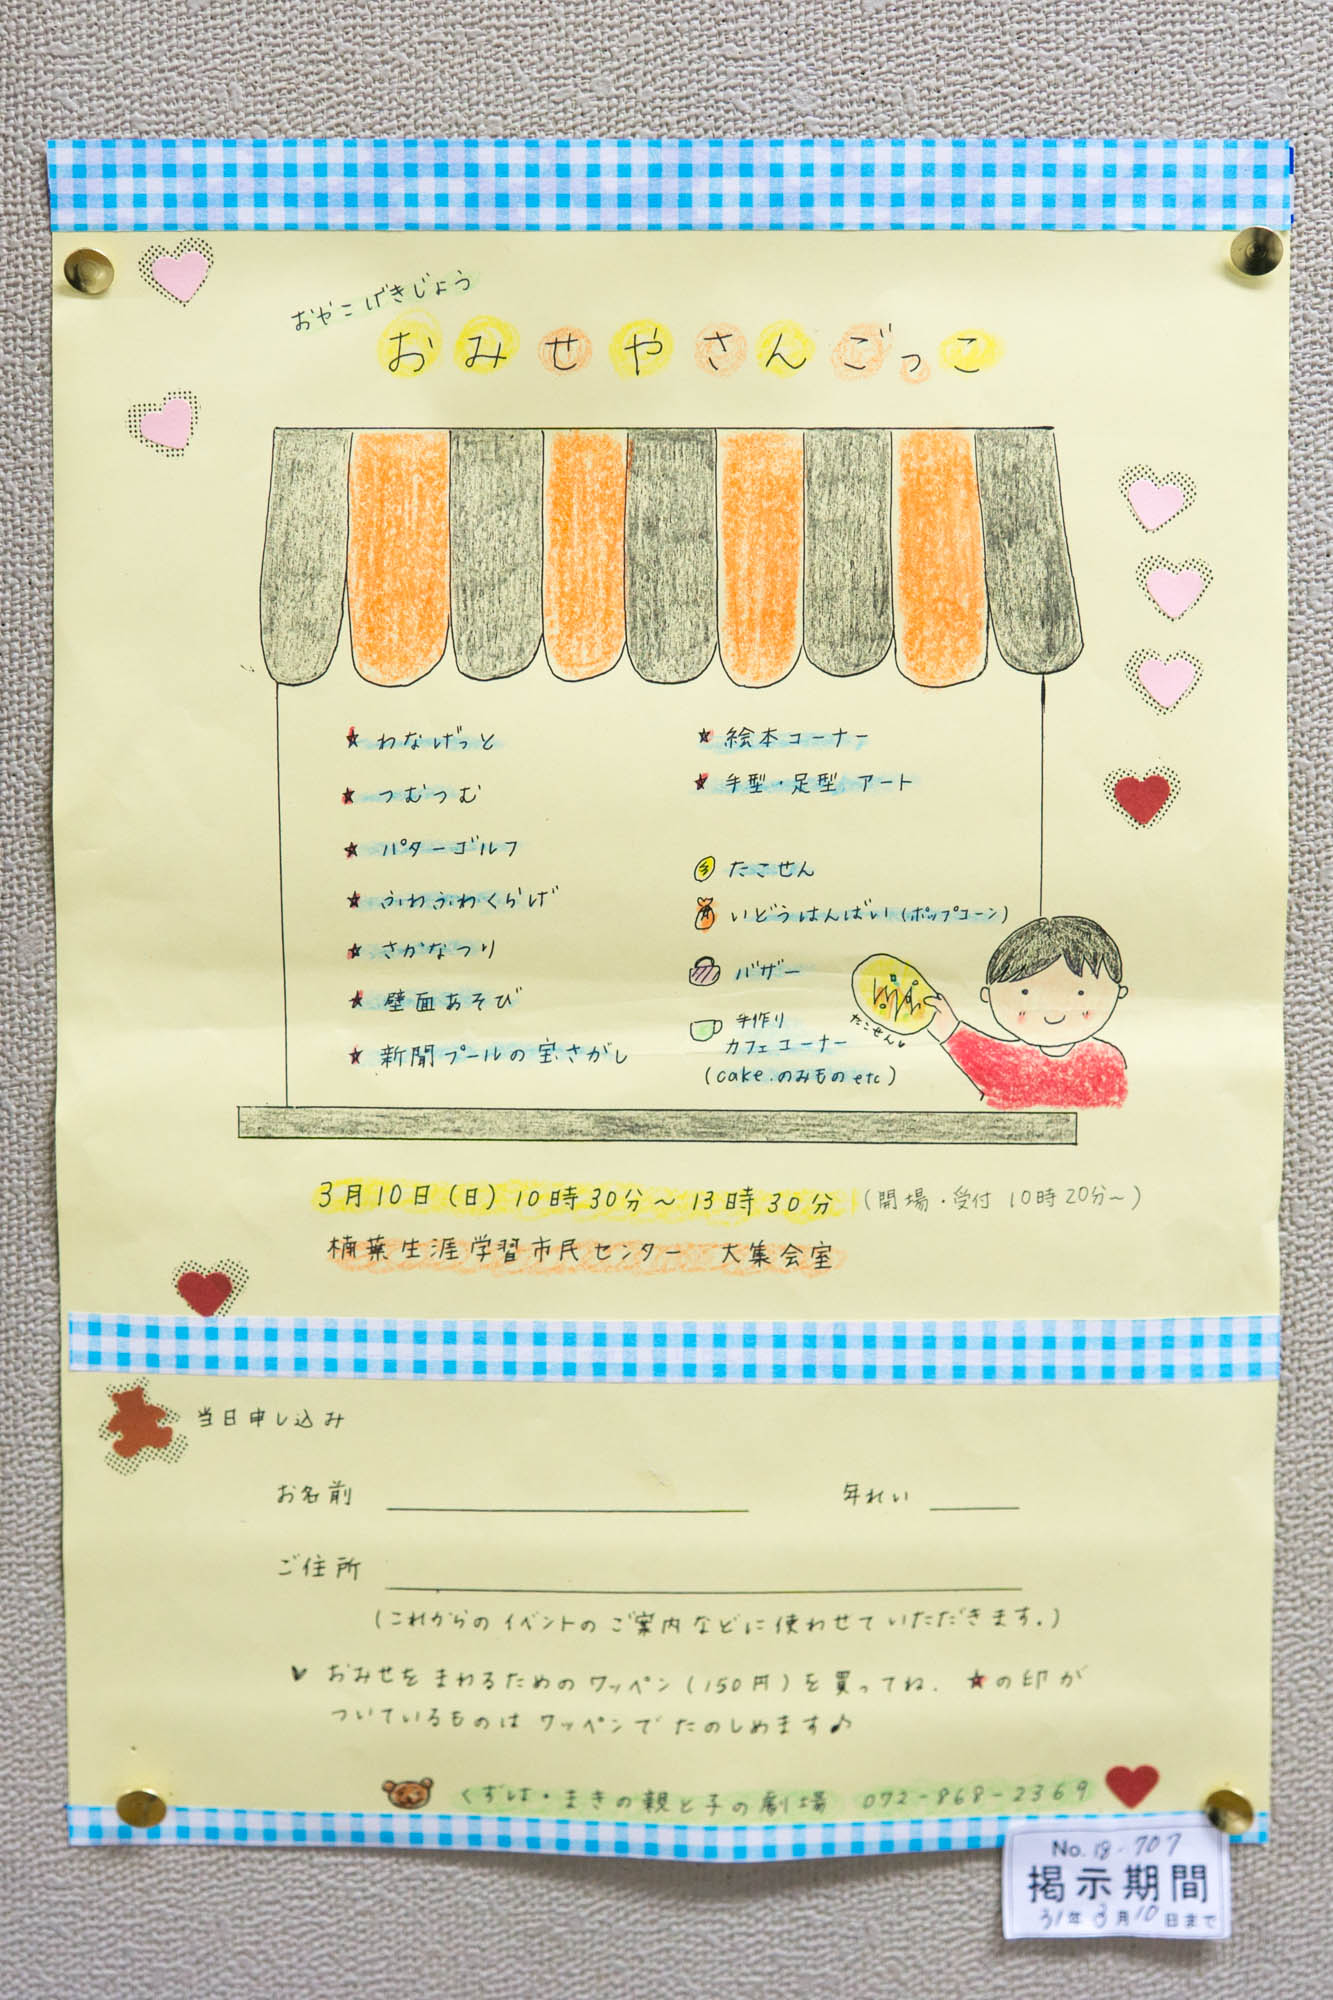 おやこげきじょう
おみせやさんごっこ
★ わなげっと
★ つむつむ
★ パターゴルフ
★ ふわふわくらげ
★ さかなつり
★ 壁面あそび
★ 新聞プールの宝さがし
★ 絵本コーナー
★ 手型・足型アート
たこせん
いどうはんばい(ポップコーン)
バザー
手作り
カフェコーナー
(cake.のみもの etc)
たこせん♥
3月10日(日)10時30分~13時30分 (開場・受付 10時20分~)
楠葉生涯学習市民センター 大集会室
当日申し込み
お名前 年れい
ご住所
(これからのイベントのご案内などに使わせていただきます。)
♥ おみせをまわるためのワッペン(150円)を買ってね。★の印が
ついているものはワッペンでたのしめます♪
くずは・まきの親と子の劇場 072-868-2369
No. 18-707
掲示期間
31年3月10日まで